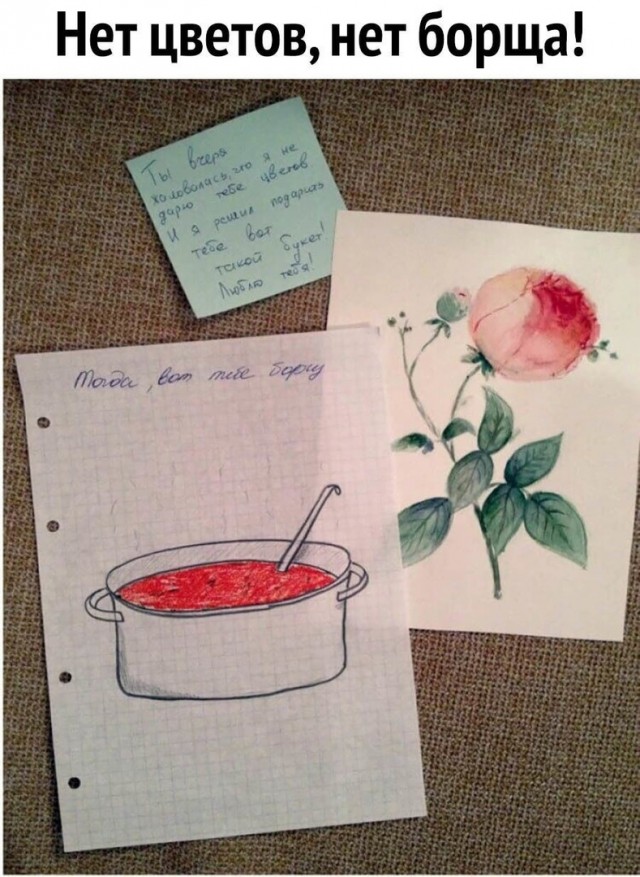 Нет цветов, нет борща!
Ты вчера
жаловалась, что я не
дарю тебе цветов
И я решил подарить
тебе вот
такой букет!
Люблю тебя!
Тогда, вот тебе борщ